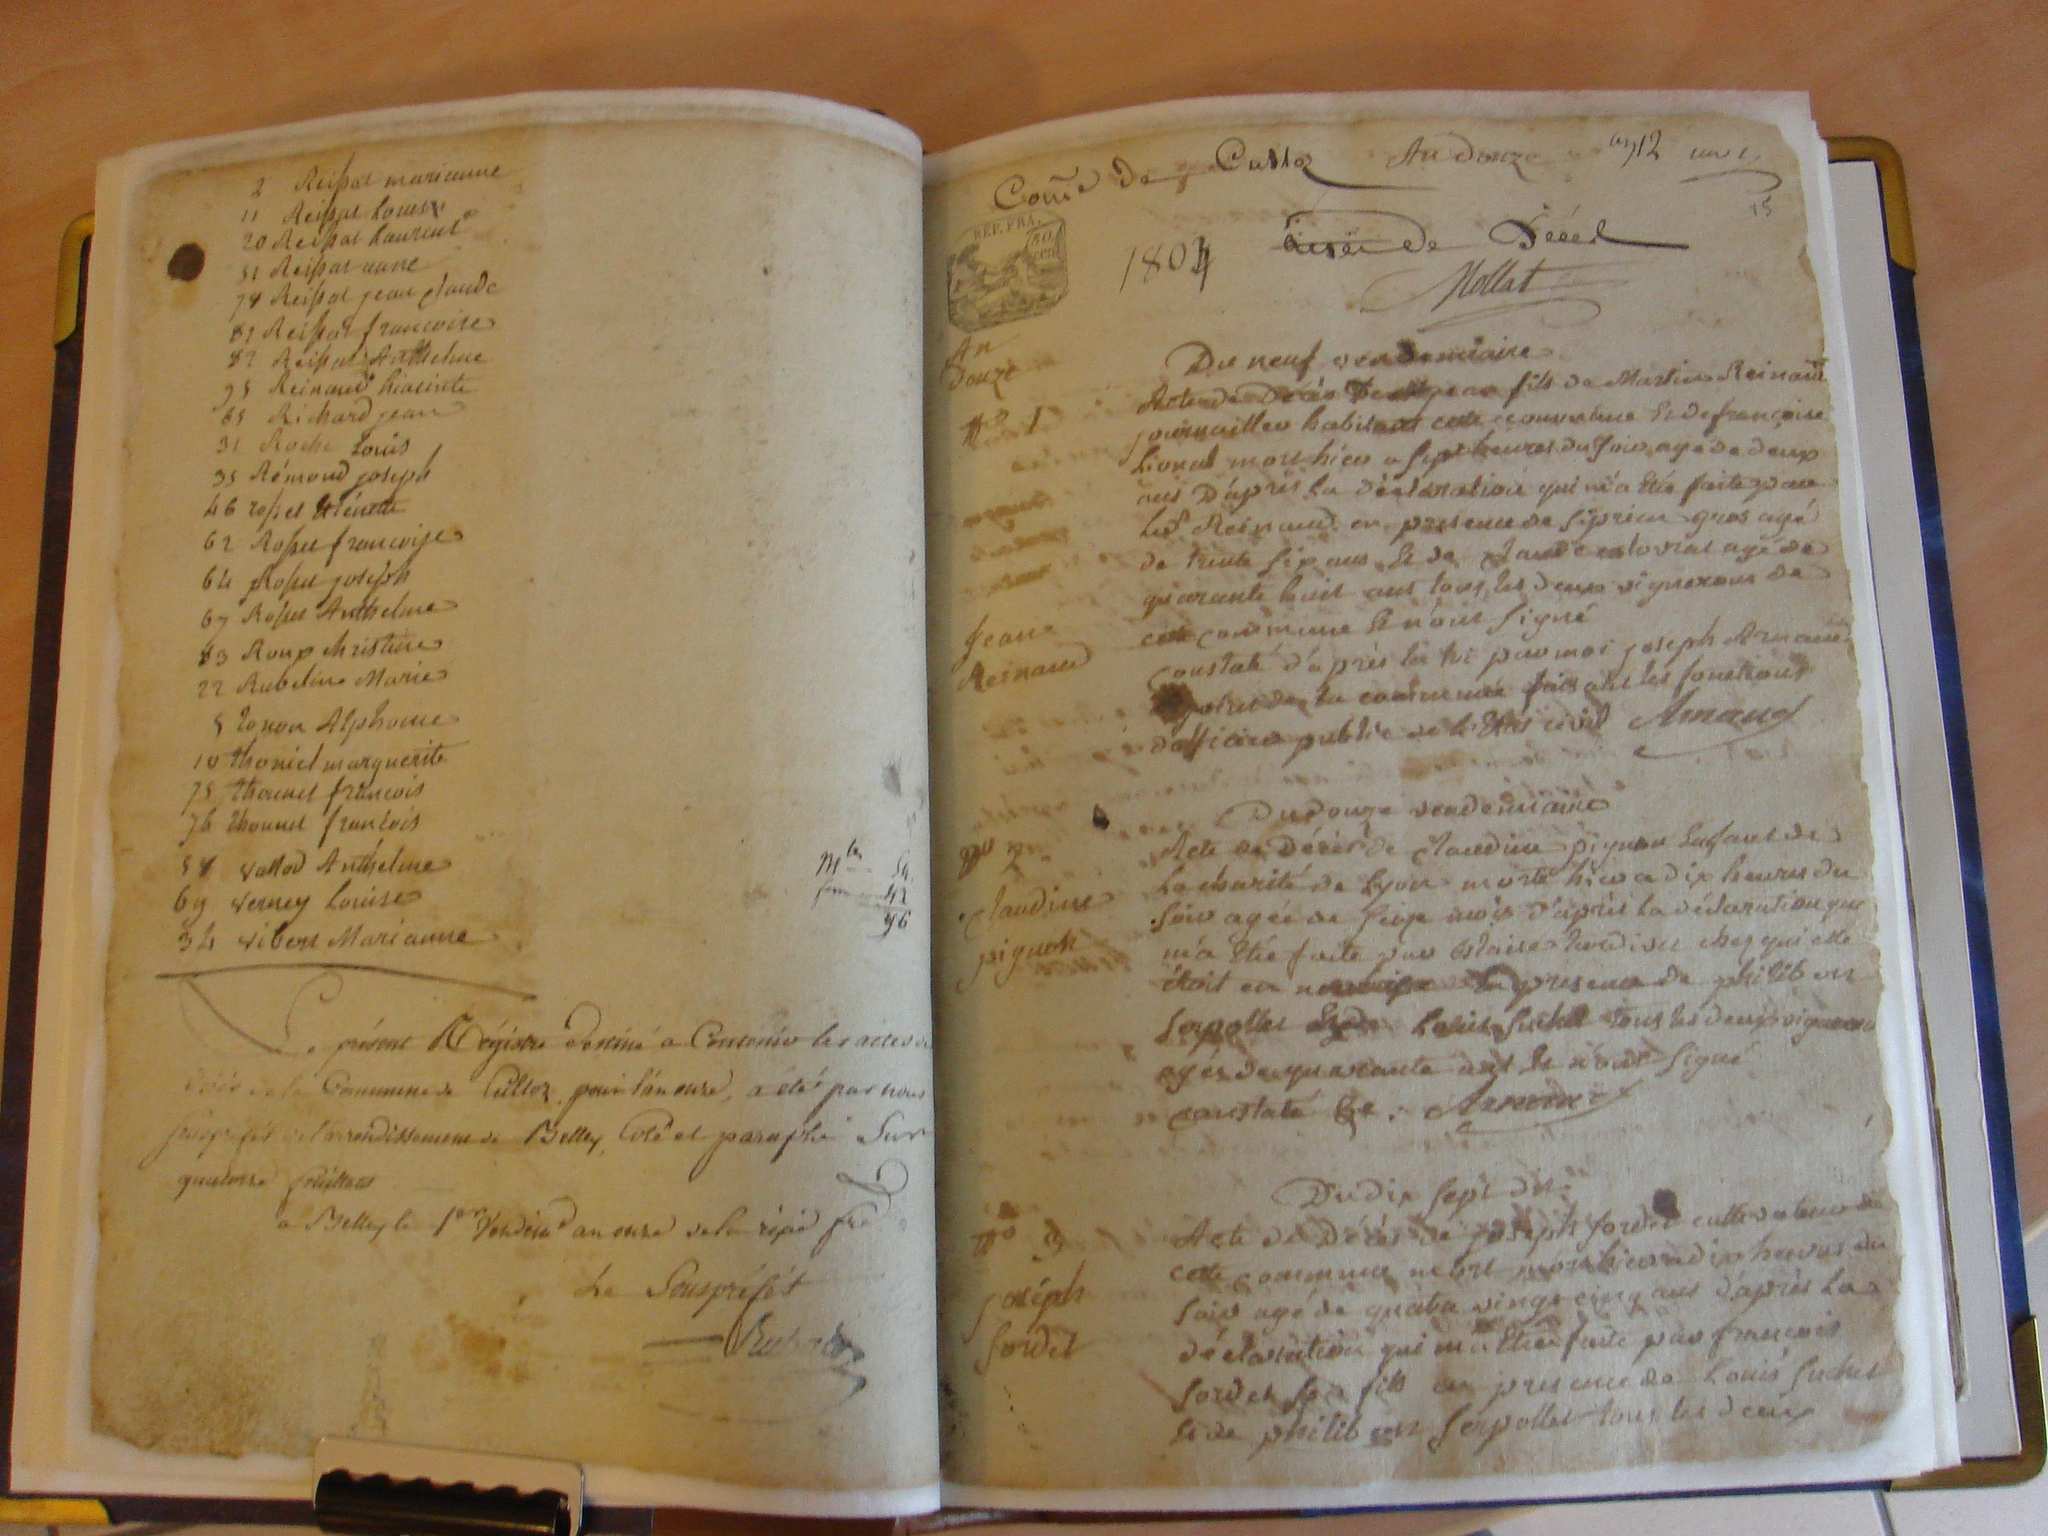 2 Reipat marianne
11 Reipat Louis
20 Reipat Laurent
51 Reipat anne
74 Reipat jean claude
81 Reipat francoise
82 Reipat Anthelme
95 Reinaud hiacinte
65 Richard jean
31 Roche Louis
35 Rémond joseph
46 ropet
62 Roput francoise
64 Roput joseph
67 Roput Anthelme
83 Roup christine
22 Rubelin Marie
5 Alphonse
10 thoniel marguerite
75 thounel francois
76 thounel francois
58 vallod Anthelme
69 verney Louise
34 vibert Marianne
Mles 54
fem 42
96
Le présent Régistre destiné a Contenir les actes de
décès de la Commune de Culloz, pour l'an onze, a été par nous
souspréfet de l'arrondissement de Belley, Coté et paraphé Sur
quatorze feuillets
a Belley le 1er Vendém. an onze de la répub. fre
Le Souspréfét
Comũe De Culloz An Douze an 12 un
15
REP. FRA.
50 cen
1804 de Décel
Mollat
An
Douze
Du neuf vendemiaire
No 1
Acte de Décès De jean fils de Martin Reinaud
journaillier habitant cette commune Et de francoise
mort hier a sept heures du soir agé de deux
ans D'après La Déclaration qui m'a Etée faite par
Led Reinaud en presence de siprien gros agé
de trente six ans Et de Claude agé de
quarante huit ans tous les deux vignerons de
cette commune Et n'ont signé
Jean
Reinaud
Constaté d'après la loi par moi joseph Armand
de la commune faisant les fonctions
d'officier public de l'Etat civil Armand
Du Douze vendemiaire
No 2
Claudine
pignon
Acte de Décès de Claudine pignon Enfant de
La charité de Lyon morte hier a dix heures du
soir agée de seize mois d'après La déclaration que
m'a Etée faite par chez qui elle
étoit en nourrice En presence de philibert
serpollet Et de Louis suchet tous les deux vignerons
agés de quarante ans Et n'ont signé
constaté &c. Armand
Du dix sept dit
No 3
joseph
sordet
Acte de Décès de joseph sordet cultivateur de
cette commune mort hier a dix heures du
soir agé de quatre vingt cinq ans d'après La
déclaration qui m'a Etée faite par francois
sordet so fils en presence de Louis suchet
Et de philibert serpollet tous les deux